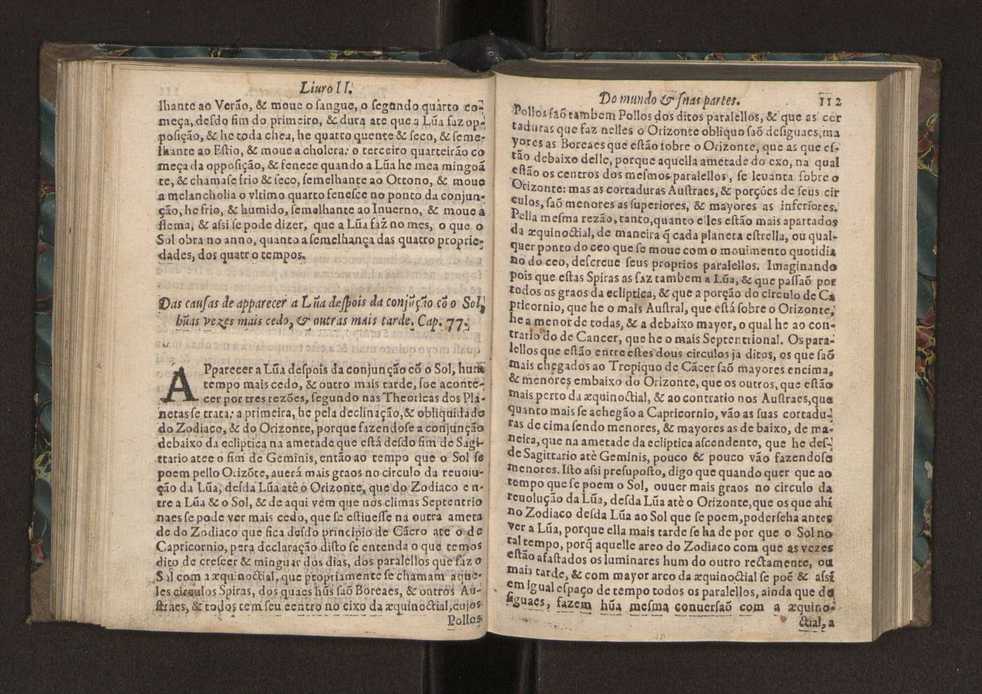 Liuro II.
lhante ao Verão, & moue o sangue, o segundo quarto co-
meça, desdo fim do primeiro, & dura ate que a Lũa faz op-
posição, & he toda chea, he quatro quente & seco, & seme-
lhante ao Estio, & moue a cholera: o terceiro quarteirão co
meça da opposição, & fenece quando a Lũa he mea mingoã
te, & chamase frio & seco, semelhante ao Ottono, & moue
a melancholia o vltimo quarto fenesce no ponto da conjun-
ção, he frio, & humido, semelhante ao Inuerno, & moue a
flema, & assi se pode dizer, que a Lũa faz no mes, o que o
Sol obra no anno, quanto a semelhança das quatro proprie-
dades, dos quatro tempos.
Das causas de apparecer a Lũa despois da conjũção cõ o Sol,
hũas vezes mais cedo, & outras mais tarde. Cap. 77.
APparecer a Lũa despois da conjunção cõ o Sol, hum
tempo mais cedo, & outro mais tarde, soe aconte-
cer por tres rezões, segundo nas Theoricas dos Pla-
netas se trata: a primeira, he pela declinação, & obliquidade
do Zodiaco, & do Orizonte, porque fazendose a conjunção
debaixo da ecliptica na ametade que está desdo fim de Sagi-
ttario atee o fim de Geminis, então ao tempo que o Sol se
poem pello Orizõte, auerá mais graos no circulo da reuolu-
ção da Lũa, desda Lũa atè o Orizonte, que do Zodiaco en-
tre a Lũa & o Sol, & de aqui vém que nos climas Septentrio
naes se pode ver mais cedo, que se estiuesse na outra ameta
de do Zodiaco que fica desdo principio de Cãcro ate o de
Capricornio, pera declaração disto se entenda o que temos
dito de crescer & minguar dos dias, dos paralellos que faz o
Sol com a æquinoctial, que propriamente se chamam aque-
les circulos Spiras, dos quaes hũs saõ Boreaes, & outros Au-
straes, & todos tem seu centro no eixo da æquinoctial, cujos
Pollos
Do mundo & suas partes. 112
Pollos saõ tambem Pollos dos ditos paralellos, & que as cor
taduras que faz nelles o Orizonte obliquo saõ desiguaes, ma
yores as Boreaes que estão sobre o Orizonte, que as que es-
tão debaixo delle, porque aquella ametade do exo, na qual
estão os centros dos mesmos paralellos, se leuanta sobre o
Orizonte: mas as cortaduras Austraes, & porções de seus cir
culos, saõ menores as superiores, & mayores as inferiores.
Pella mesma rezão, tanto, quanto elles estão mais apartados
da æquinoctial, de maneira q̃ cada planeta estrella, ou qual-
quer ponto do ceo que se moue com o mouimento quotidia
no do ceo, descreue seus proprios paralellos. Imaginando
pois que estas Spiras as faz tambem a Lũa, & que passaõ por
todos os graos da ecliptica, & que a porção do circulo de Ca
pricornio, que he o mais Austral, que está sobre o Orizonte,
he a menor de todas, & a debaixo mayor, o qual he ao con-
trario do de Cancer, que he o mais Septentrional. Os para-
lellos que estão entre estes dous circulos ja ditos, os que saõ
mais chegados ao Tropiquo de Cãcer saõ mayores encima,
& menores embaixo do Orizonte, que os outros, que estão
mais perto da æquinoctial, & ao contrario nos Austraes, que
quanto mais se achegão a Capricornio, vão as suas cortadu-
ras de cima sendo menores, & mayores as de baixo, de ma-
neira, que na ametade da ecliptica ascendente, que he des-
de Sagittario atè Geminis, pouco & pouco vão fazendose
menores. Isto assi presuposto, digo que quando quer que ao
tempo que se poem o Sol, ouuer mais graos no circulo da
reuolução da Lũa, desda Lũa atè o Orizonte, que os que ahi
no Zodiaco desda Lũa ao Sol que se poem, poderseha antes
ver a Lũa, porque ella mais tarde se ha de por que o Sol no
tal tempo, porq̃ aquelle arco do Zodiaco com que as vezes
estão afastados os luminares hum do outro rectamente, ou
mais tarde, & com mayor arco da æquinoctial se poẽ & assi
em igual espaço de tempo todos os paralellos, ainda que de
siguaes, fazem hũa mesma conuersaõ com a æquino-
ctial, a